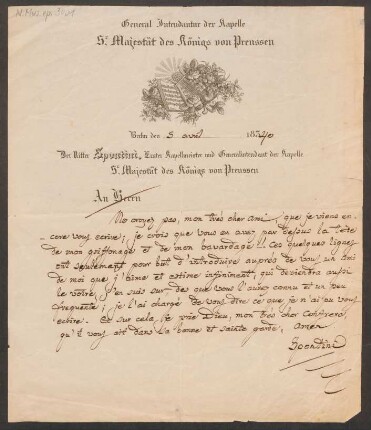 General Intendantur der Kapelle
Sr. Majestät des Königs von Preussen
den 5 avril 1840
Der Ritter Spontini, Erster Kapellmeister und Generalintendant der Kapelle
Sr. Majestät des Königs von Preussen
An Herrn
Ne croyez pas, mon très cher ami, que je viens en-
core vous écrire; je crois que vous en avez par dessus la tête
de mon griffonage et de mon bavardage!! Ces quelques lignes
ont seulement pour but d'introduire auprès de vous un ami
de moi que j'aime et estime infiniment, qui deviendra aussi
le vôtre, j'en suis sur dès que vous l'aurez connu et un peu
fréquenté; je l'ai chargé de vous dire ce que je n'ai pu vous
écrire. Et sur cela, je prie Dieu, mon très cher Confrère,
qu'il vous ait dans sa bonne et sainte garde,
Spontini